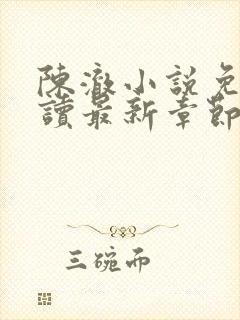 陳澈小説免
讀最新章節
三碗而